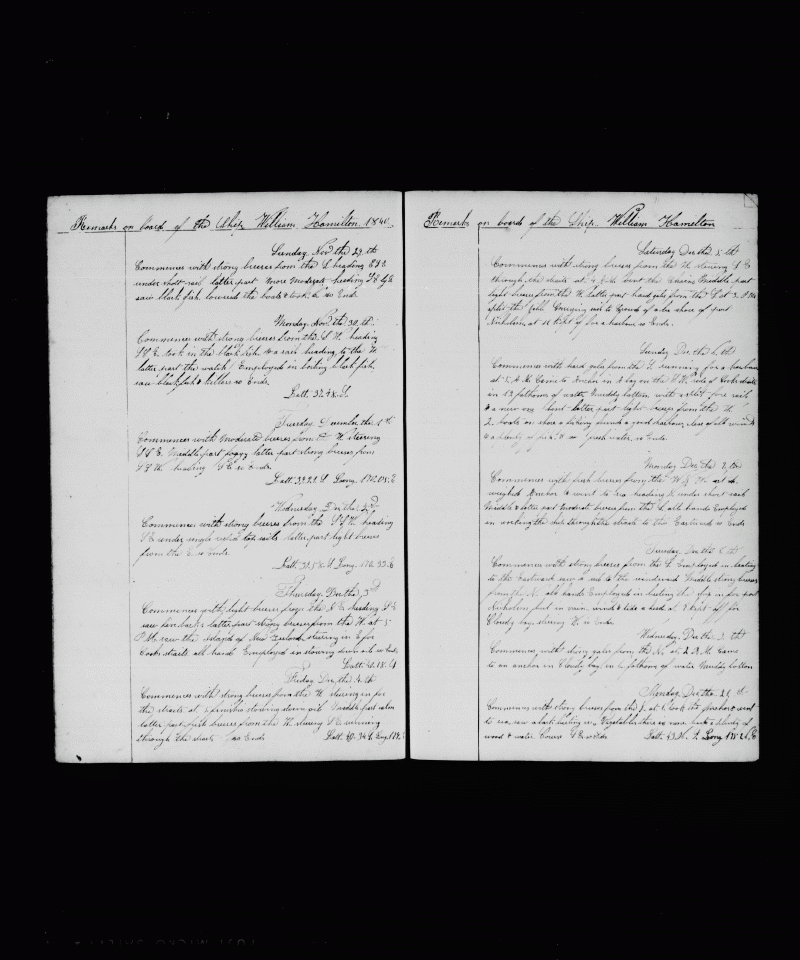 Remarks on board of the Ship William Hamilton 1840
Sunday Nov the 29 th
Commences with strong breezes from the S heading ESE
under short sail latter part more moderate heading
saw black fish lowered the boats & took so Ends
Monday Nov the 30 th
Commences with strong breezes from the S W heading
S E took in the black fish & sail heading to the W
latter part the watch Employed in boiling black fish
saw blackfish & killers so Ends
Latt. 39.48 S
Tuesday December the 1 st
Commences with Moderate breezes from the W steering
S E Middle part foggy latter part strong breezes from
S S W heading S E so Ends
Latt. 39.21 S Long. 170.08 E
Wednesday Dec the 2 d
Commences with strong breezes from the S S W heading
S E under single reefed top sails latter part light breezes
from the E so Ends
Latt. 39.58 S Long. 170.33 E
Thursday Dec the 3 d
Commences with light breezes from the heading S E
saw fin backs latter part strong breezes from the W at 5
P M saw the island of New Zeeland steering in E for
Cooks straits all hands Employed in stowing down oil so Ends
Latt. 40.18 S
Friday Dec the 4 th
Commences with strong breezes from the W steering in for
the straits at finished stowing down oil Middle part calm
latter part fresh breezes from the W steering S E running
through the straits so Ends Latt. 40.34 S Long. 173. E
Remarks on board of the Ship William Hamilton
Saturday Dec the 5 th
Commences with strong breezes from the W steering S E
through the straits at Middle part
light breezes from the W latter part hard gales from the S at 2 P M
split the Jibb Carrying sail to of a lee shore of port
Nicholson at kept of for a harbour so Ends
Sunday Dec the 6 th
Commences with hard gales from the S running for a harbour
at A M Came to Anchor in a bay on the side of Cooks straits
in 13 fathoms of water Muddy bottom with a split fore sail
& a new one bent latter part light breezes from the
2 boats on shore a fishing found a good harbour clear of all winds
& a plenty of fish & fresh water so Ends
Monday Dec the 7 th
Commences with fresh breezes from the W N W at
weighed Anchor & went to sea heading under short sail
Middle & latter part moderate breezes from the all hands Employed
in working the ship through the straits to the Eastward so Ends
Tuesday Dec the 8 th
Commences with strong breezes from the S Employed in beating
to the Eastward saw a sail to the windward Middle strong breezes
from the N all hands Employed in beating the ship in for port
Nicholson but in vain wind & tide a head at kept off for
Cloudy bay steering W so Ends
Wednesday Dec the 9 th
Commences with strong gales from the N at 2 A M Came
to an anchor in Cloudy bay in fathoms of water Muddy bottom
Monday Dec the 21 st
Commences with strong breezes from the at took the Anchor & went
to sea saw Vegetables there is none but a plenty of
wood & water Course S E so Ends Latt. 43. S Long 175.21 E